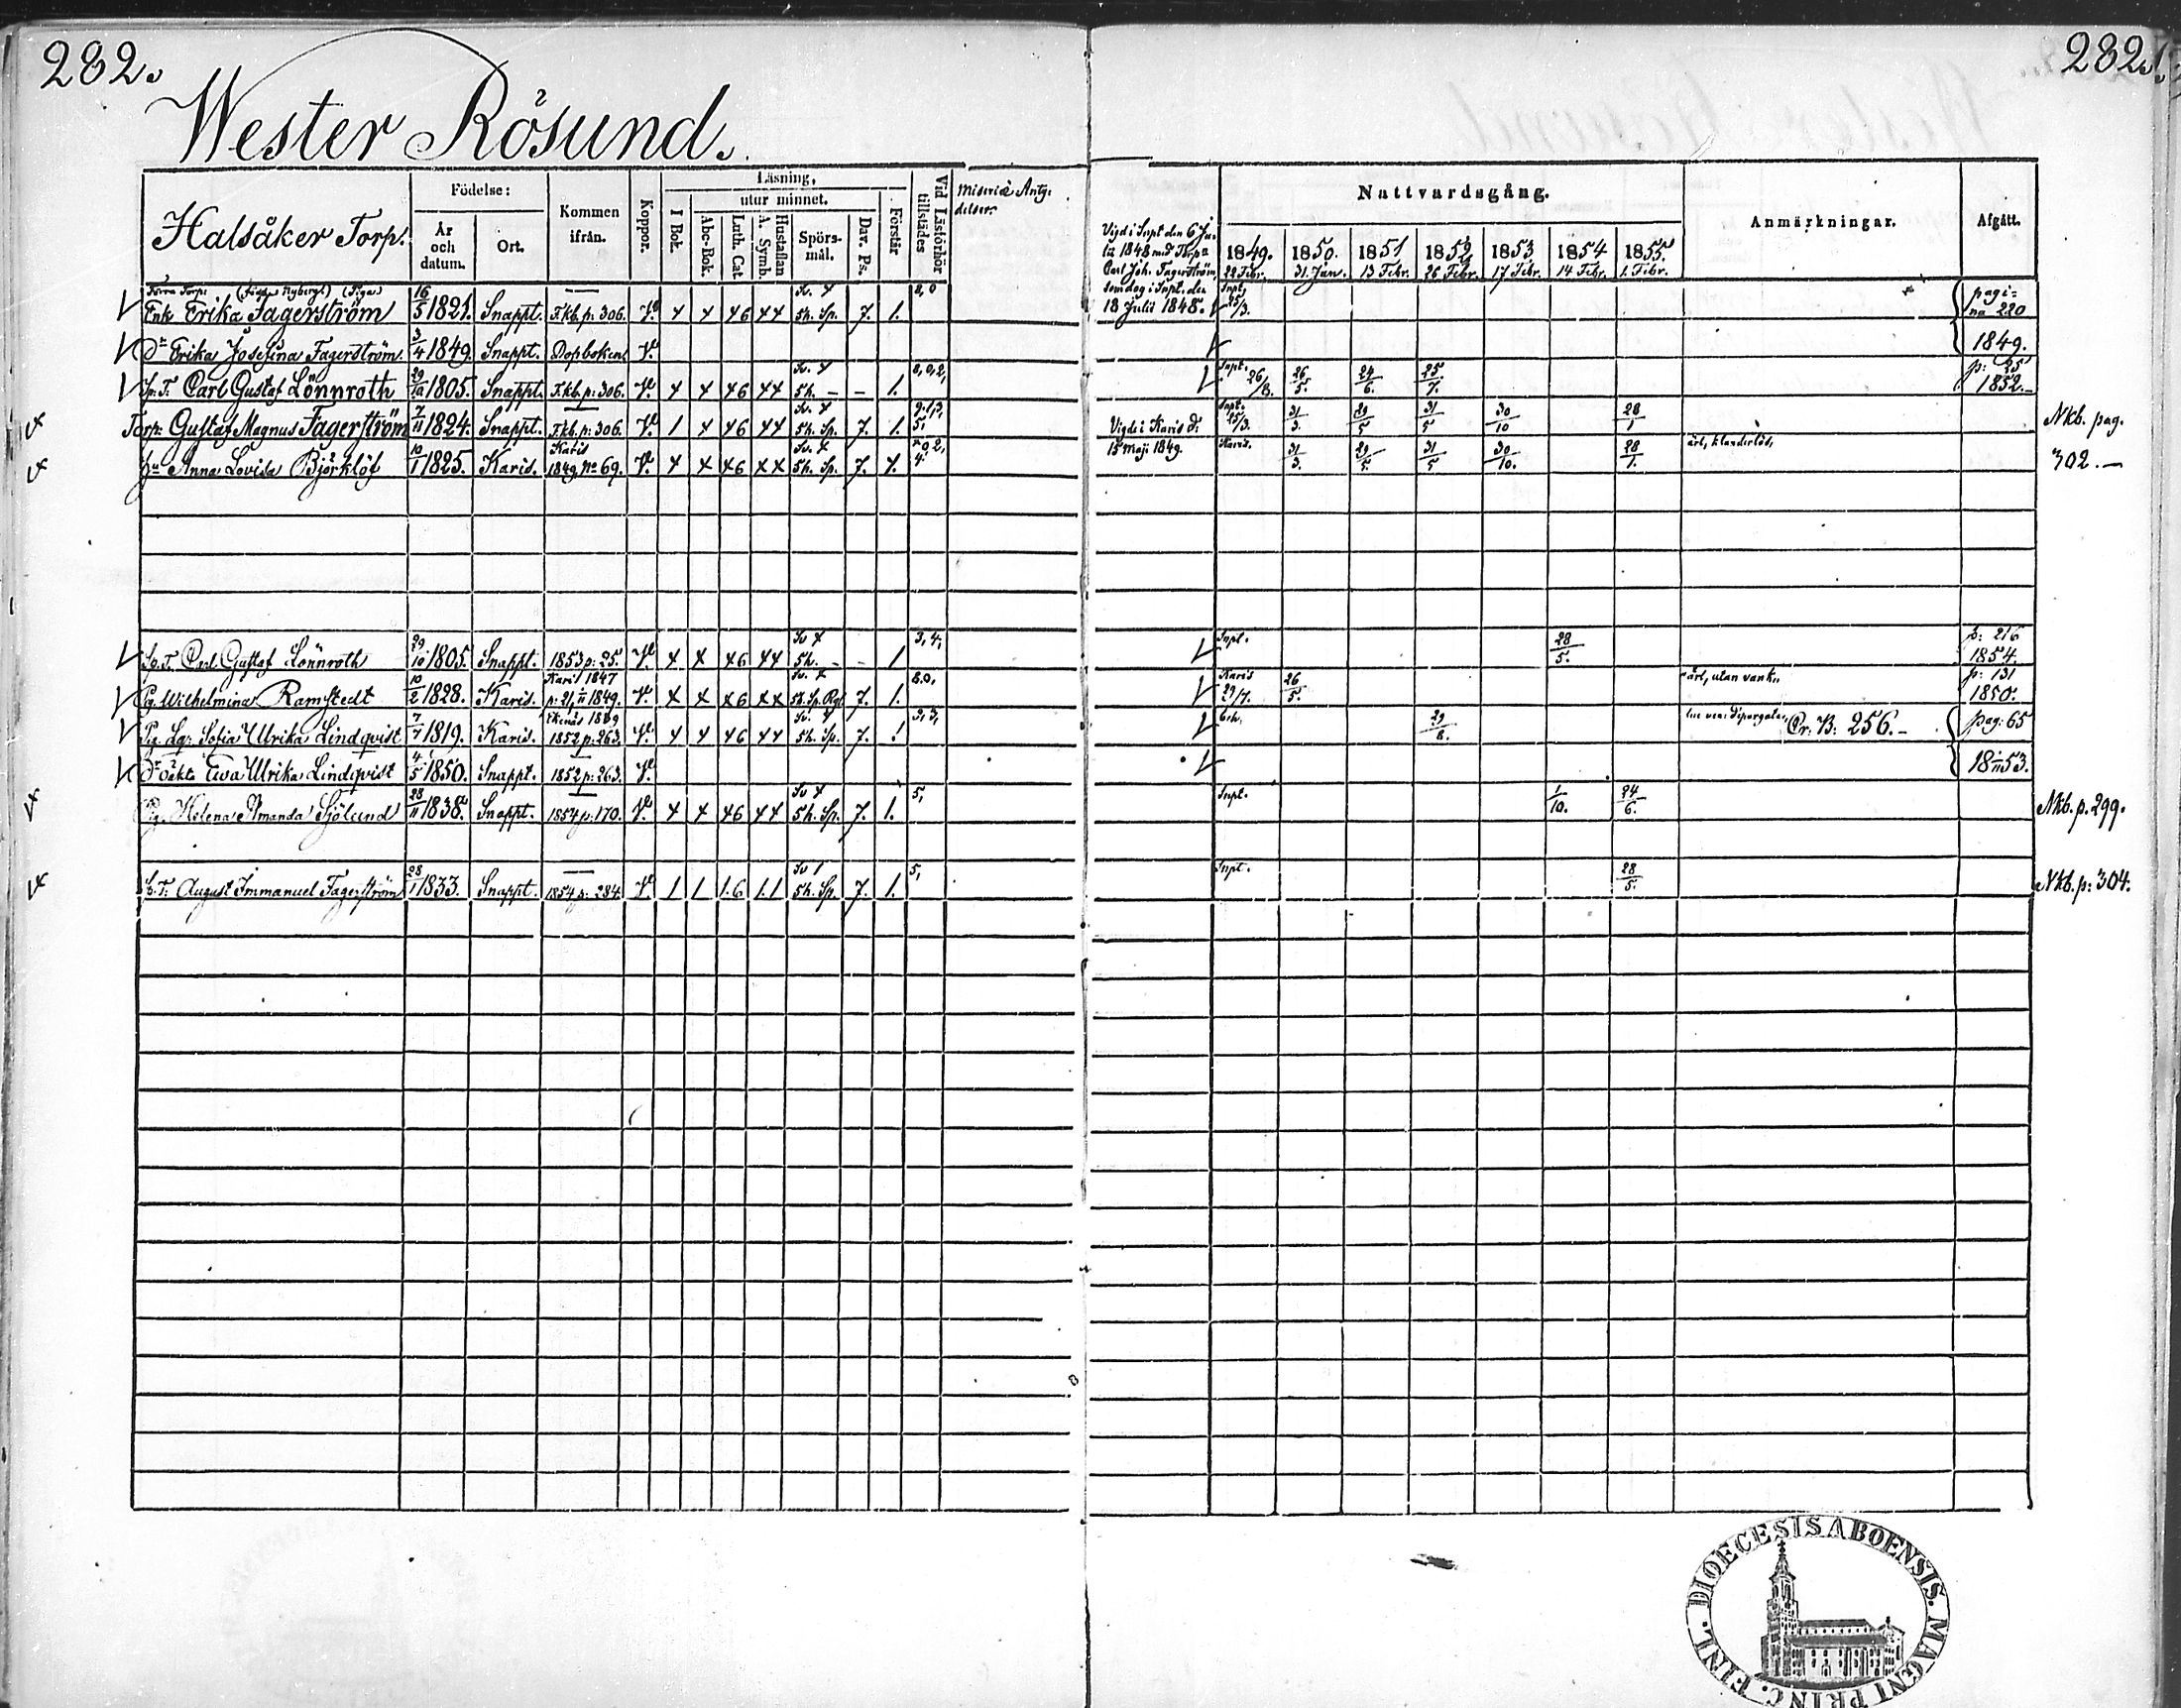 282. 282.
Wester Rösund.
Halsåker Torp.
Födelse:
År och datum.
Ort.
Kommen ifrån.
Koppor.
Läsning,
I Bok.
utur minnet.
Abc-Bok.
Luth. Cat.
Hustaflan A. Symb.
Spörs-mål.
Dav. Ps.
Förstår
Vid Läsförhör tillstädes
Nattvardsgång.
1849. 1850. 1851 1852 1853 1854 1855.
22 Febr. 31. Jan. 13 Febr. 26 Febr. 17 Febr. 14 Febr. 1. Febr.
Anmärkningar.
Afgått.
Vigd i Snpt den 6 Ju-
lii 1848 med Torp:
Carl Joh. Fagerström
som dog i Snpt. den
18 Julii 1848.
Enk. Erika Fagerström 16/5 1821. Snappt. F.kb. p: 306. V. 7. 1. 8,0 Snpt. 25/3. pagi-na 220
Dr Erika Josefina Fagerström 3/4 1849. Snappt. Dopboken V. 1849.
Sp. T. Carl Gustaf Lönnroth 29/10 1805. Snappt. F.kb. p: 306. V. 5h. – – 1. 8,0,2, Snpt. 26/8. 26/5. 24/6. 25/7. p: 25 1852.–
Torp: Gustaf Magnus Fagerström 7/11 1824. Snappt. F.kb. p: 306. V. 1 5h. Sp. 7. 1. Vigde i Karis d. Snpt. 25/3. 31/3. 29/5 31/5 30/10 28/1 Nkb. pag.
Hu Anna Lovisa Björklöf 10/1 1825. Karis. Karis 1849, No 69. V. 5h. Sp. 7. 15 Maji 1849. Karis. 31/3. 29/5. 31/5 30/10. 28/1. ärl, klanderlös, 302.–
Sp. T. Carl Gustaf Lönnroth 29/10 1805. Snappt. 1853 p: 25. V. 5h. – – 1 3,4, Snpt. 28/5. p: 216 1854.
Pig. Wilhelmina Ramstedt 10/2 1828. Karis. Karis 1847 p: 21, 1849. V. 7. 1. 8.0, Karis 29/7. 26/5. ärl, utan vank.. p: 131 1850.
Pig. Lg: Sofia Ulrika Lindqvist 7/7 1819. Karis. 1852 p: 263. V. 5h. Sp. 7. 1 29/8. Cr: B: 256.– pag: 65
Dr oäkta Eva Ulrika Lindqvist 4/5 1850. Snappt. 1852 p: 263. V. 18 53.
Pig. Helena Amanda Sjölund 28/11 1838. Snappt. 1854 p: 170. V. 5h. Sp. 7. 1. 5, Snpt. 1/10. 24/6. Nkb. p. 299.
Sp. T. August Immanuel Fagerström 28/1 1833. Snappt. 1854 p: 284. V. 1 1 1.6 1.1 Sv 1 5h. Sp. 7. 1. 5, Snpt. 28/5. Nkb. p: 304.
DIOECESIS ABOENSIS. MAGNI PRINC. FINL.